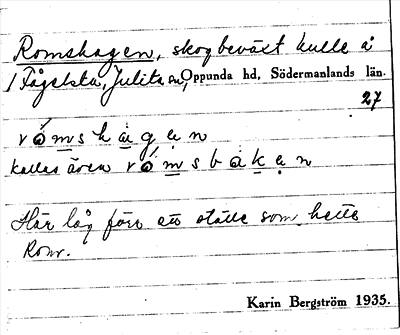 Romshagen, skogbeväxt kulle å
1 Fågelsta, Julita sn, Oppunda hd, Södermanlands län.
27
rómshagen
kallas även rómsbaken
Här låg förr ett ställe som hette
Rom.
Karin Bergström 1935.